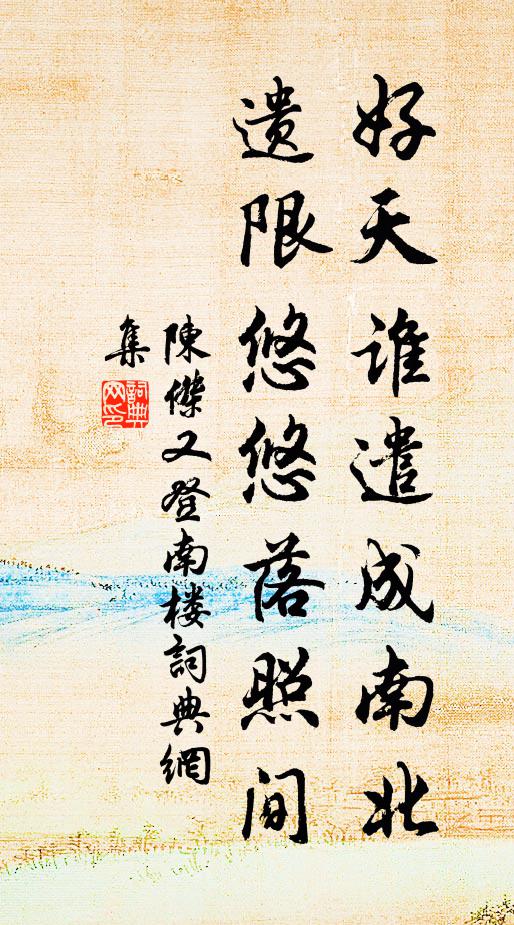 好天谁遣成南北
遗限悠悠落照间
陳傑又登南楼詞典網
集
詞典网印